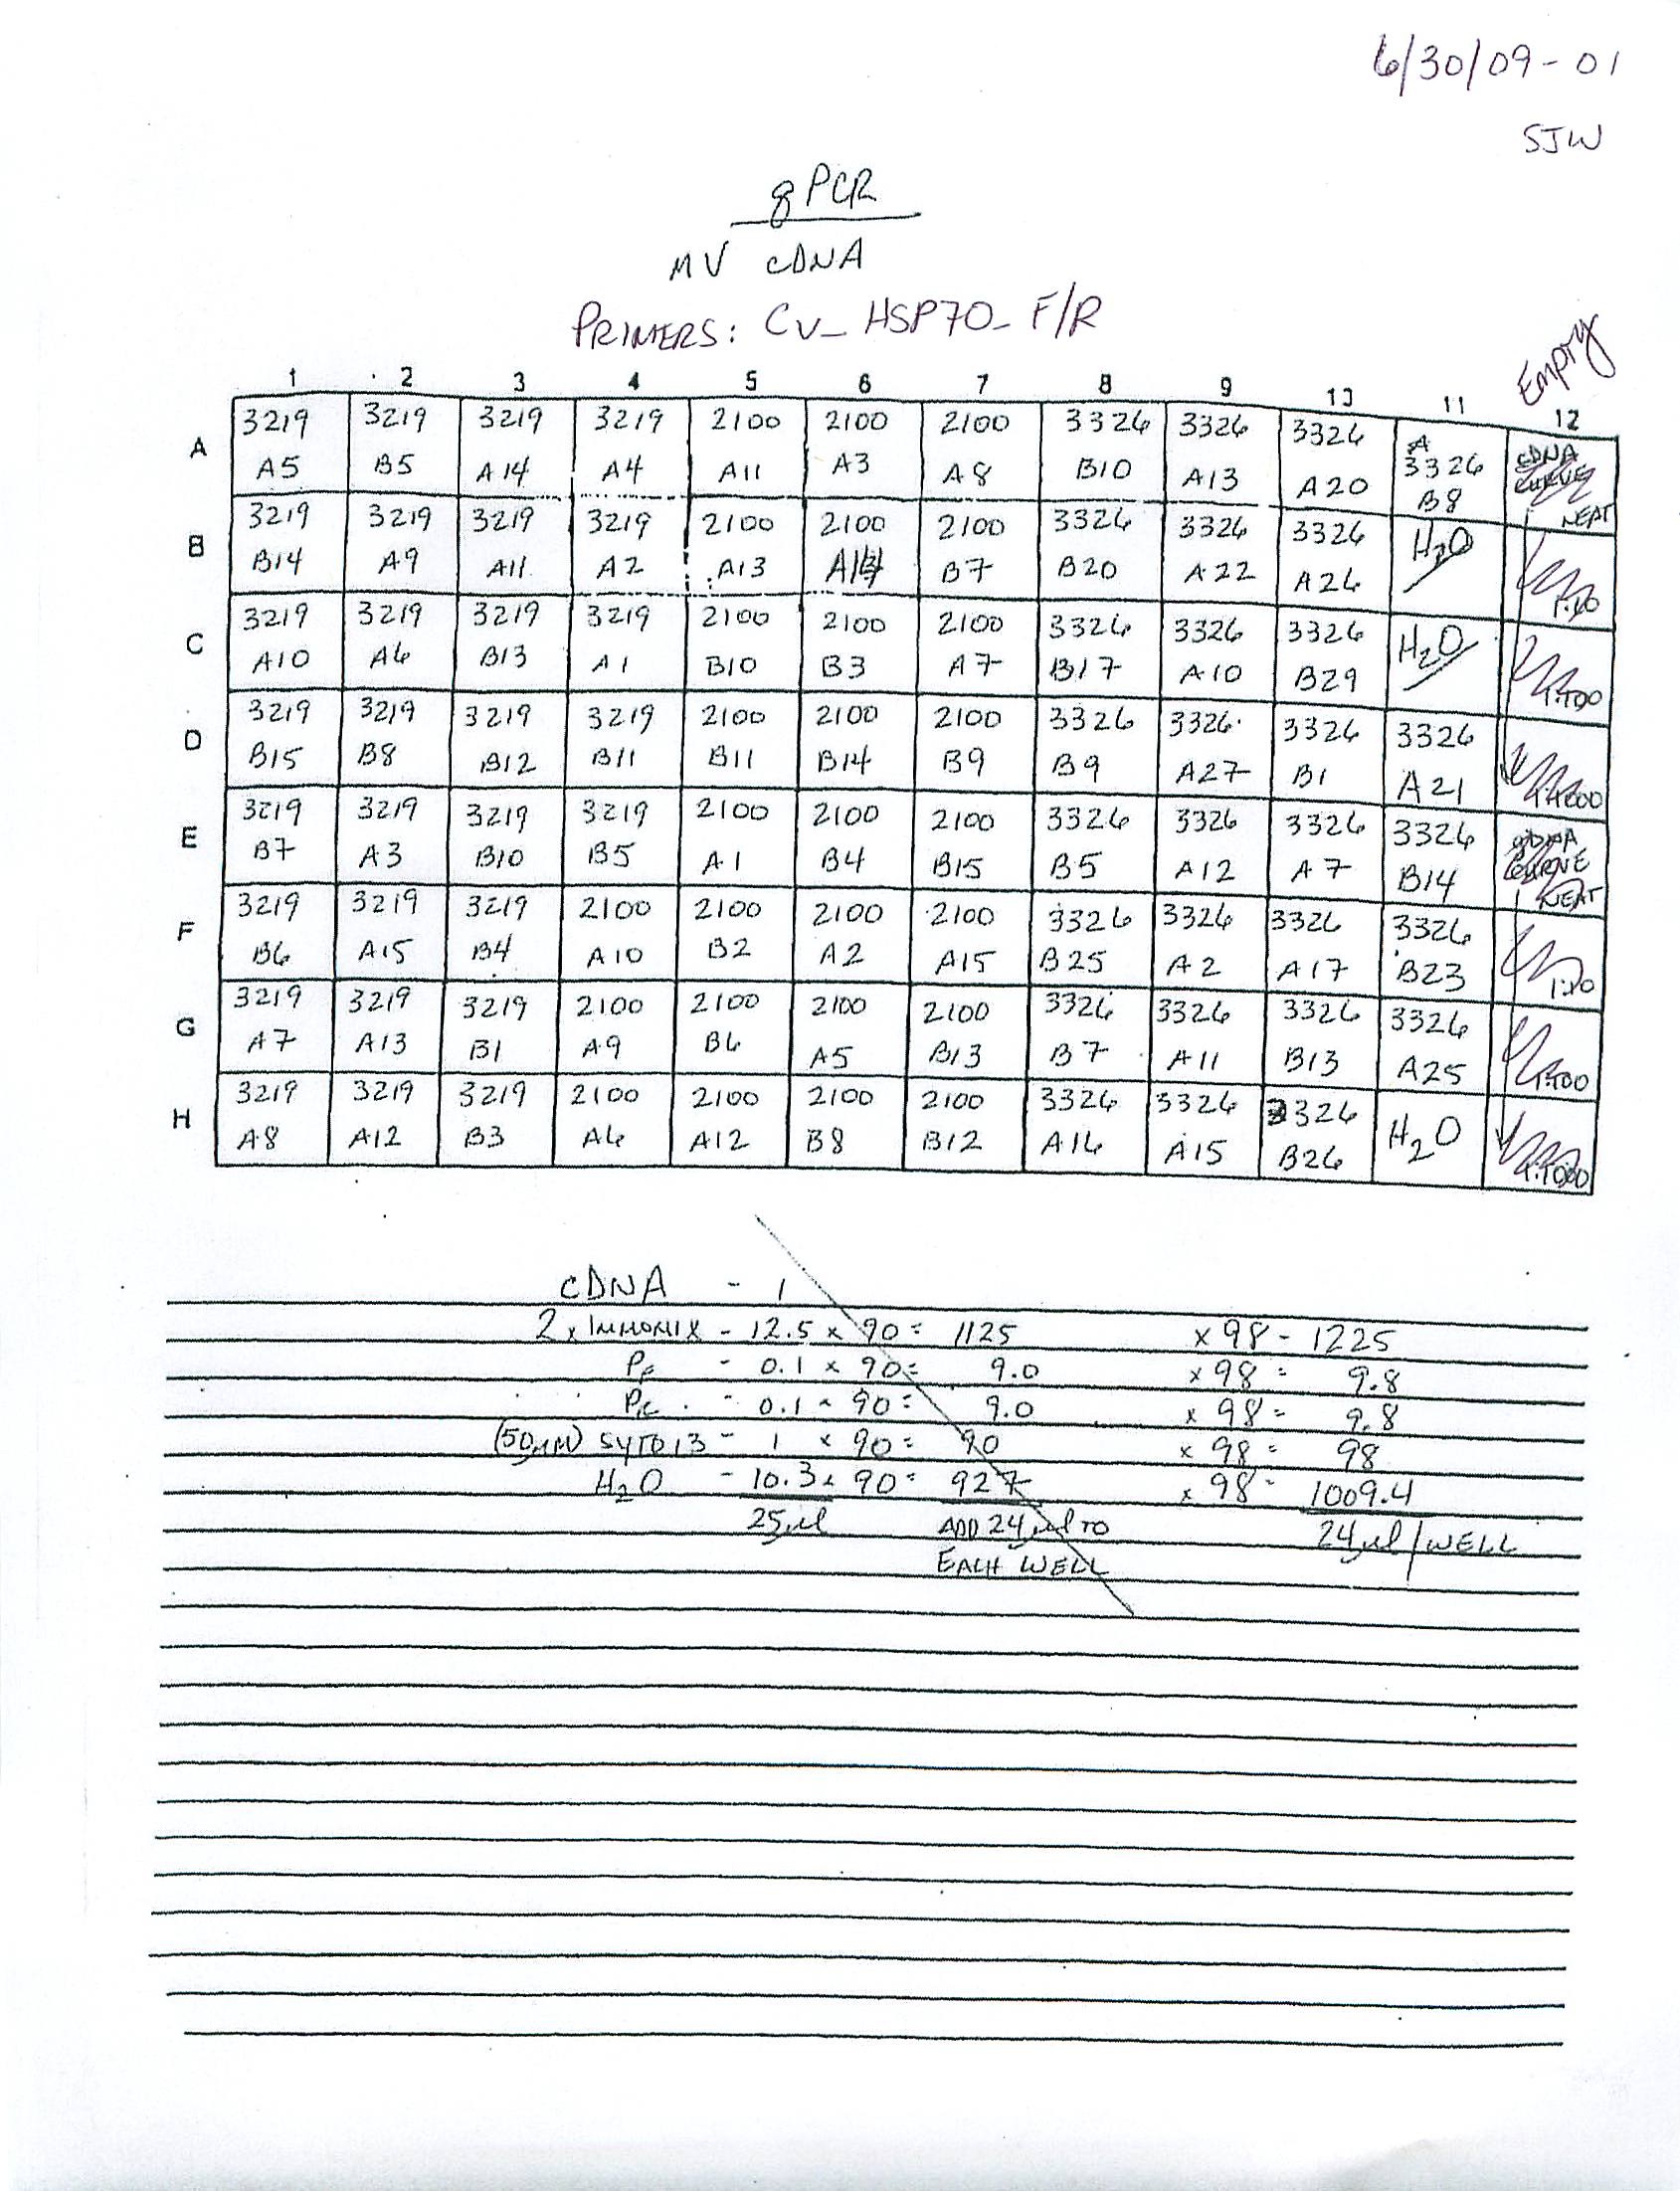 6/30/09-01
SJW
qPCR
MV cDNA
PRIMERS: CV_HSP70_F/R
Empty
1 2 3 4 5 6 7 8 9 10 11 12
A
3219 3219 3219 3219 2100 2100 2100 3326 3326 3326 3326 cDNA CURVE
A5 B5 A14 A4 A11 A3 A8 B10 A13 A20 B8 NEAT
B
3219 3219 3219 3219 2100 2100 2100 3326 3326 3326 H2O
B14 A9 A11 A2 A13 B7 B20 A22 A26 1:10
C
3219 3219 3219 3219 2100 2100 2100 3326 3326 3326 H2O
A10 A6 B13 A1 B10 B3 A7 B17 A10 B29 1:100
D
3219 3219 3219 3219 2100 2100 2100 3326 3326 3326 3326
B15 B8 B12 B11 B11 B14 B9 B9 A27 B1 A21 1:1000
E
3219 3219 3219 3219 2100 2100 2100 3326 3326 3326 3326 gDNA CURVE
B7 A3 B10 B5 A1 B4 B15 B5 A12 A7 B14 NEAT
F
3219 3219 3219 2100 2100 2100 2100 3326 3326 3326 3326
B6 A15 B4 A10 B2 A2 A15 B25 A2 A17 B23 1:10
G
3219 3219 3219 2100 2100 2100 2100 3326 3326 3326 3326
A7 A13 B1 A9 B6 A5 B13 B7 A11 B13 A25 1:100
H
3219 3219 3219 2100 2100 2100 2100 3326 3326 3326 H2O
A8 A12 B3 A6 A12 B8 B12 A16 A15 B26 1:1000
cDNA - 1
2x IMMOMIX - 12.5 x 90 = 1125 x 98 - 1225
PF - 0.1 x 90 = 9.0 x 98 = 9.8
PR - 0.1 x 90 = 9.0 x 98 = 9.8
(50µM) SYTO13 - 1 x 90 = 90 x 98 = 98
H2O - 10.3 x 90 = 927 x 98 = 1009.4
25µl ADD 24µl TO 24µl/WELL
EACH WELL